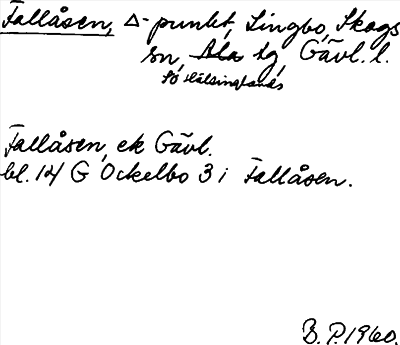 Fallåsen, Δ-punkt, Lingbo, Skogs
sn, Ala tg, Gävl. l.
Sö Hälsinglands
Fallåsen, ek Gävl.
bl. 14 G Ockelbo 3 i Fallåsen.
B. P. 1960.